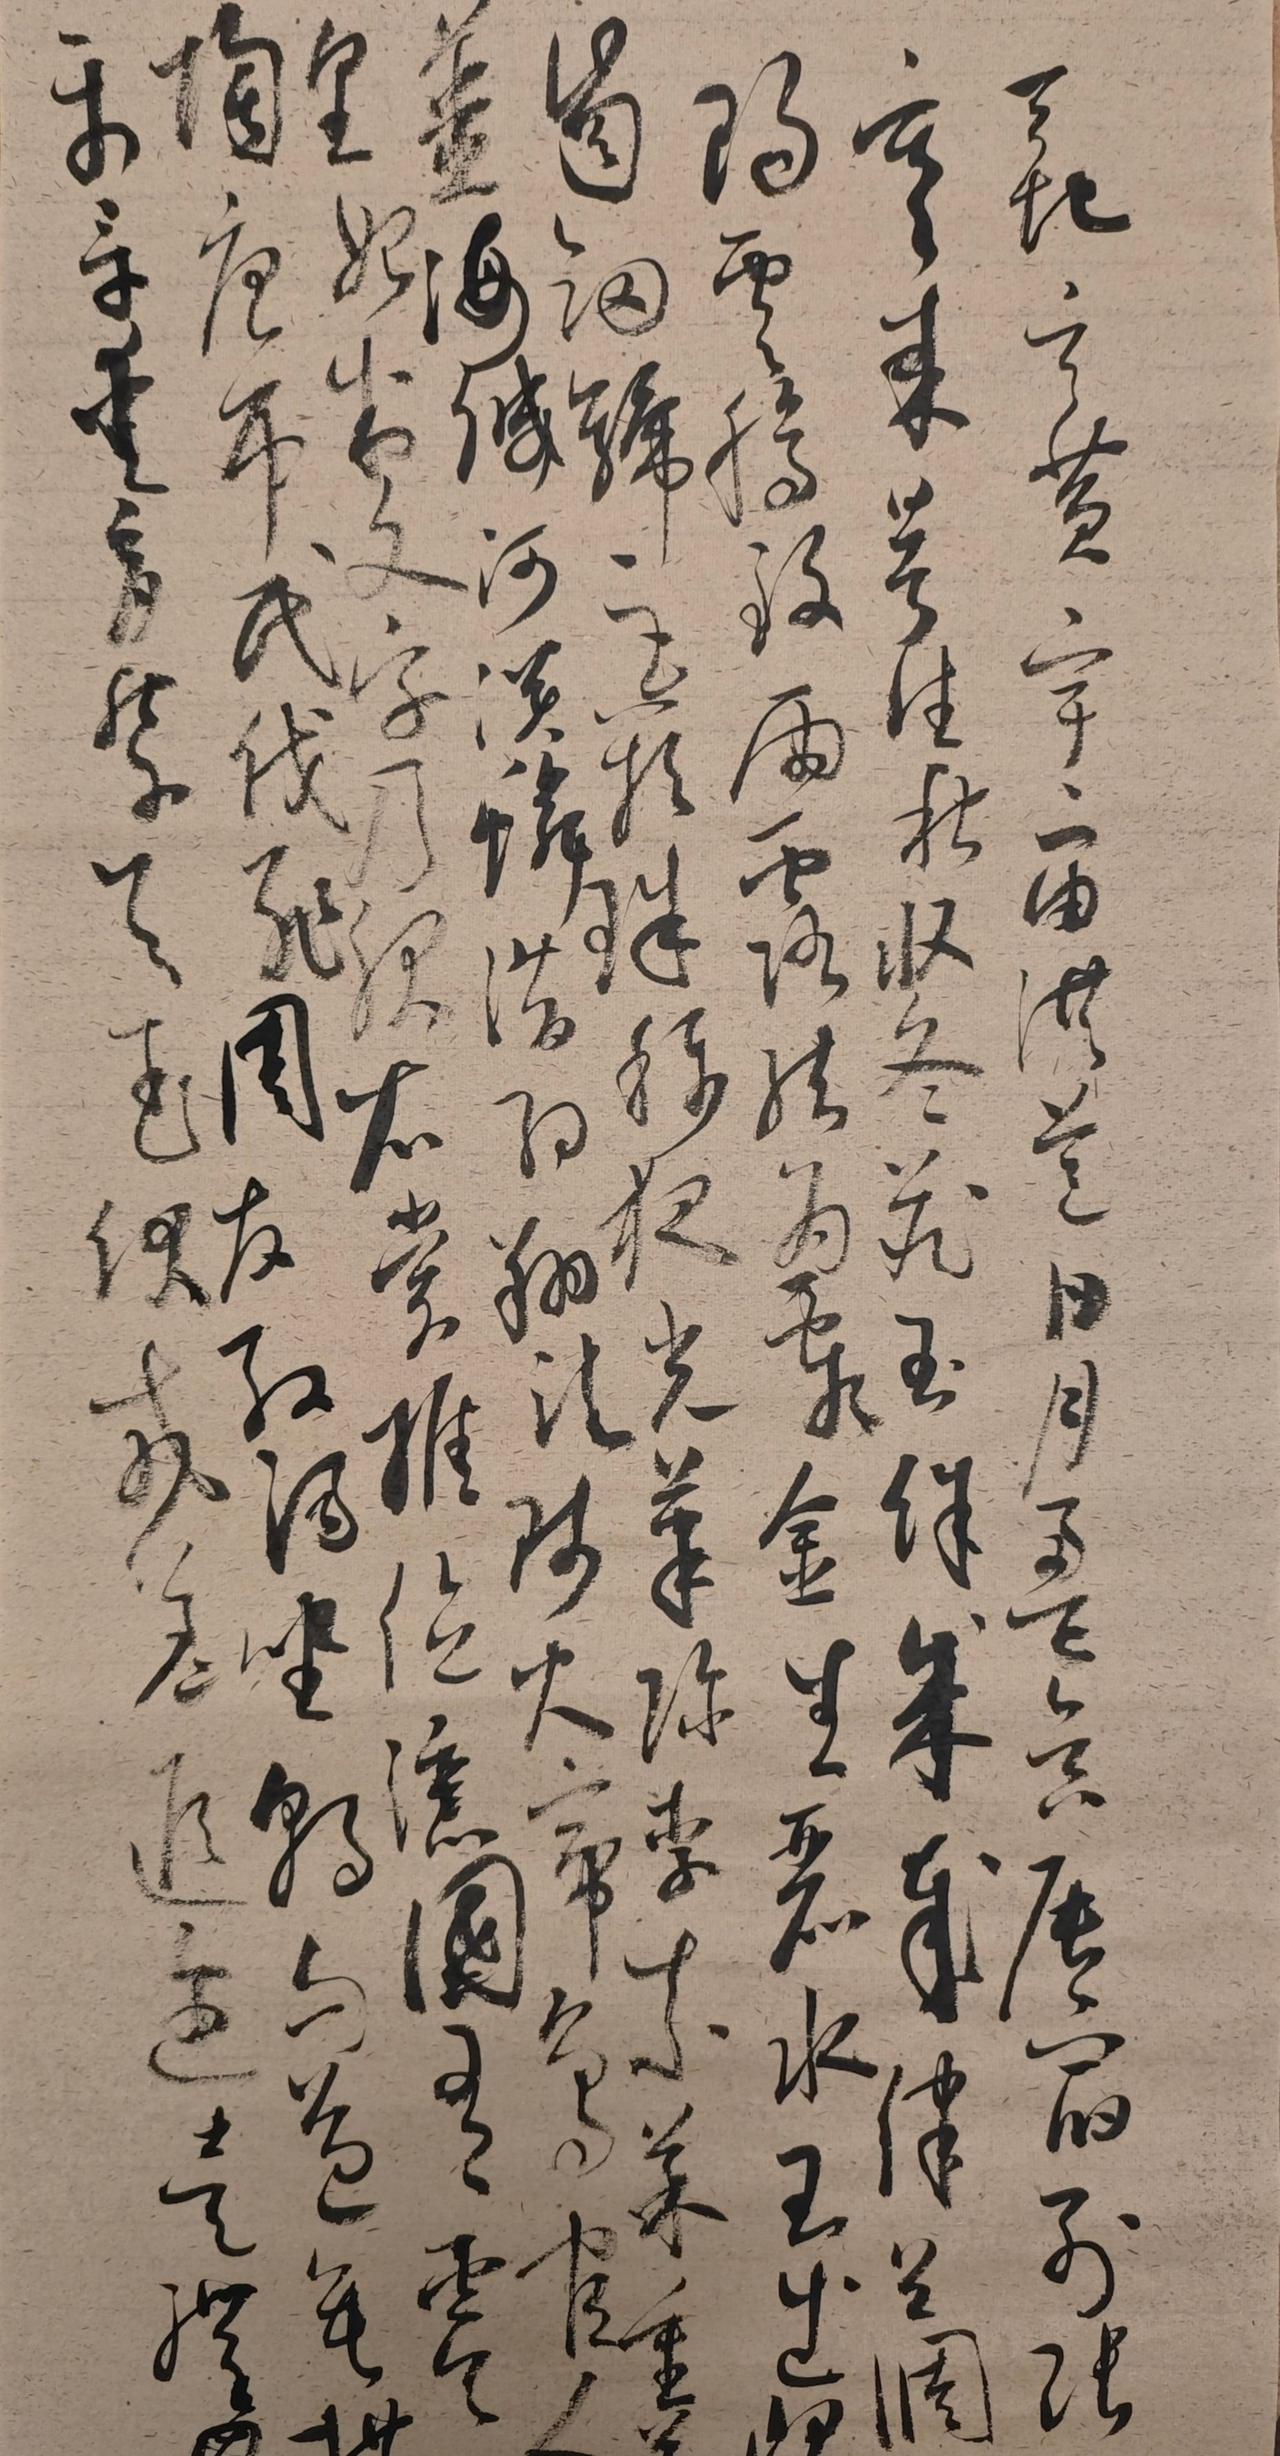 天地玄黃宇宙洪荒日月盈昃辰宿列張
寒來暑往秋收冬藏閏餘成歲律呂調
陽雲騰致雨露結為霜金生麗水玉出崑
崗劍號巨闕珠稱夜光菓珍李柰菜重芥
薑海鹹河淡鱗潛羽翔龍師火帝鳥官人
皇始制文字乃服衣裳推位讓國有虞
陶唐弔民伐罪周發殷湯坐朝問道垂拱
平章愛育黎首臣伏戎羌遐邇壹體